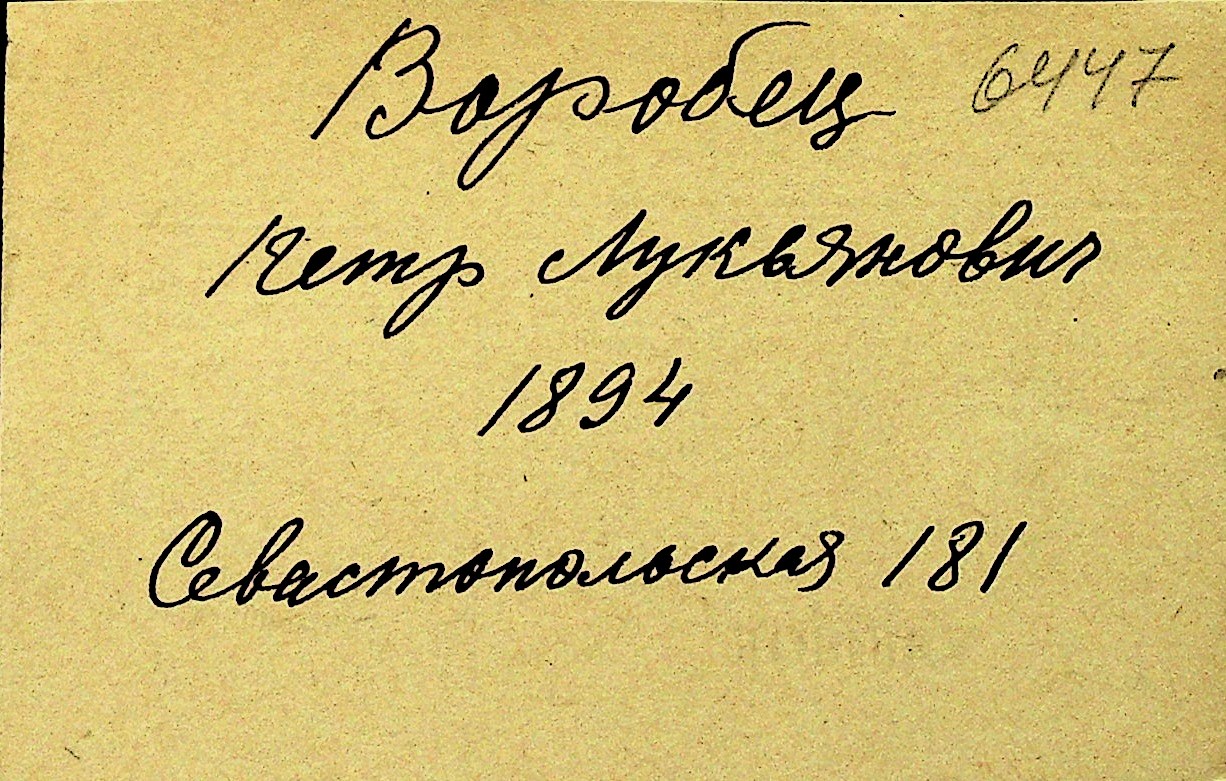 Воробец 6447
Петр Лукьянович
1894
Севастопольская 181